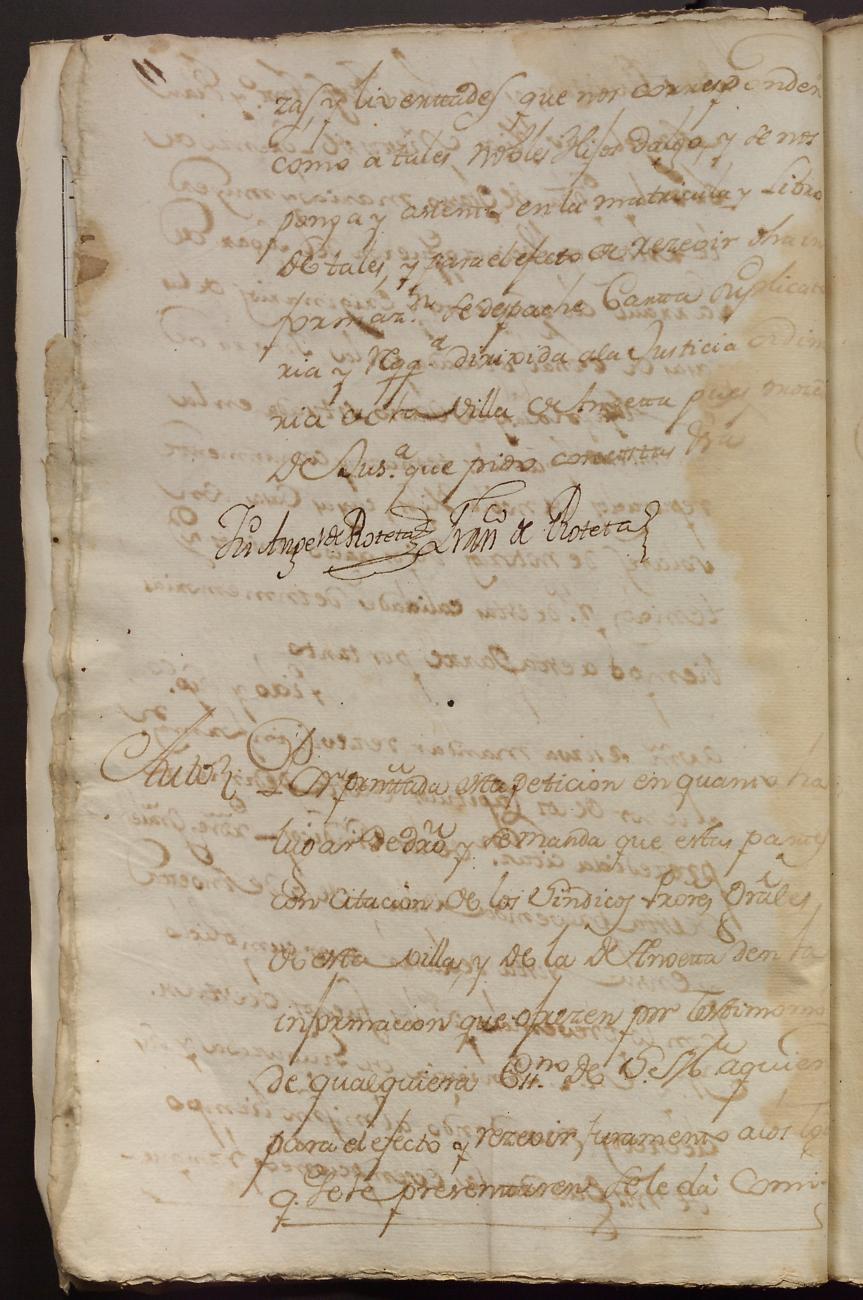 zas, y livertades que nos corresponden
como a tales Nobles Hijos dalgo, y se nos
ponga y asiente en la matricula y Libro
de tales, y para el efecto de rezevir dha in
formaz.on se despache Cartta suplicato
ria y Reqq.a dirixida a la Justicia ordina
ria de la villa de Anoetta pues
de Jus.a que pido costas
Ju Angel de Roteta Fran.co de Roteta
Auto Por presentada esta peticion en quanto ha
lugar de dro y se manda que estas partes
con citacion de los Sindicos Prores Grales
de esta villa, y de la de Anoetta den la
informacion que ofrezen por testimonio
de qualquiera Essno de S. M. a quien
para el efecto y rezevir juramento a los tgos
q. se le presentaren se le da Comi